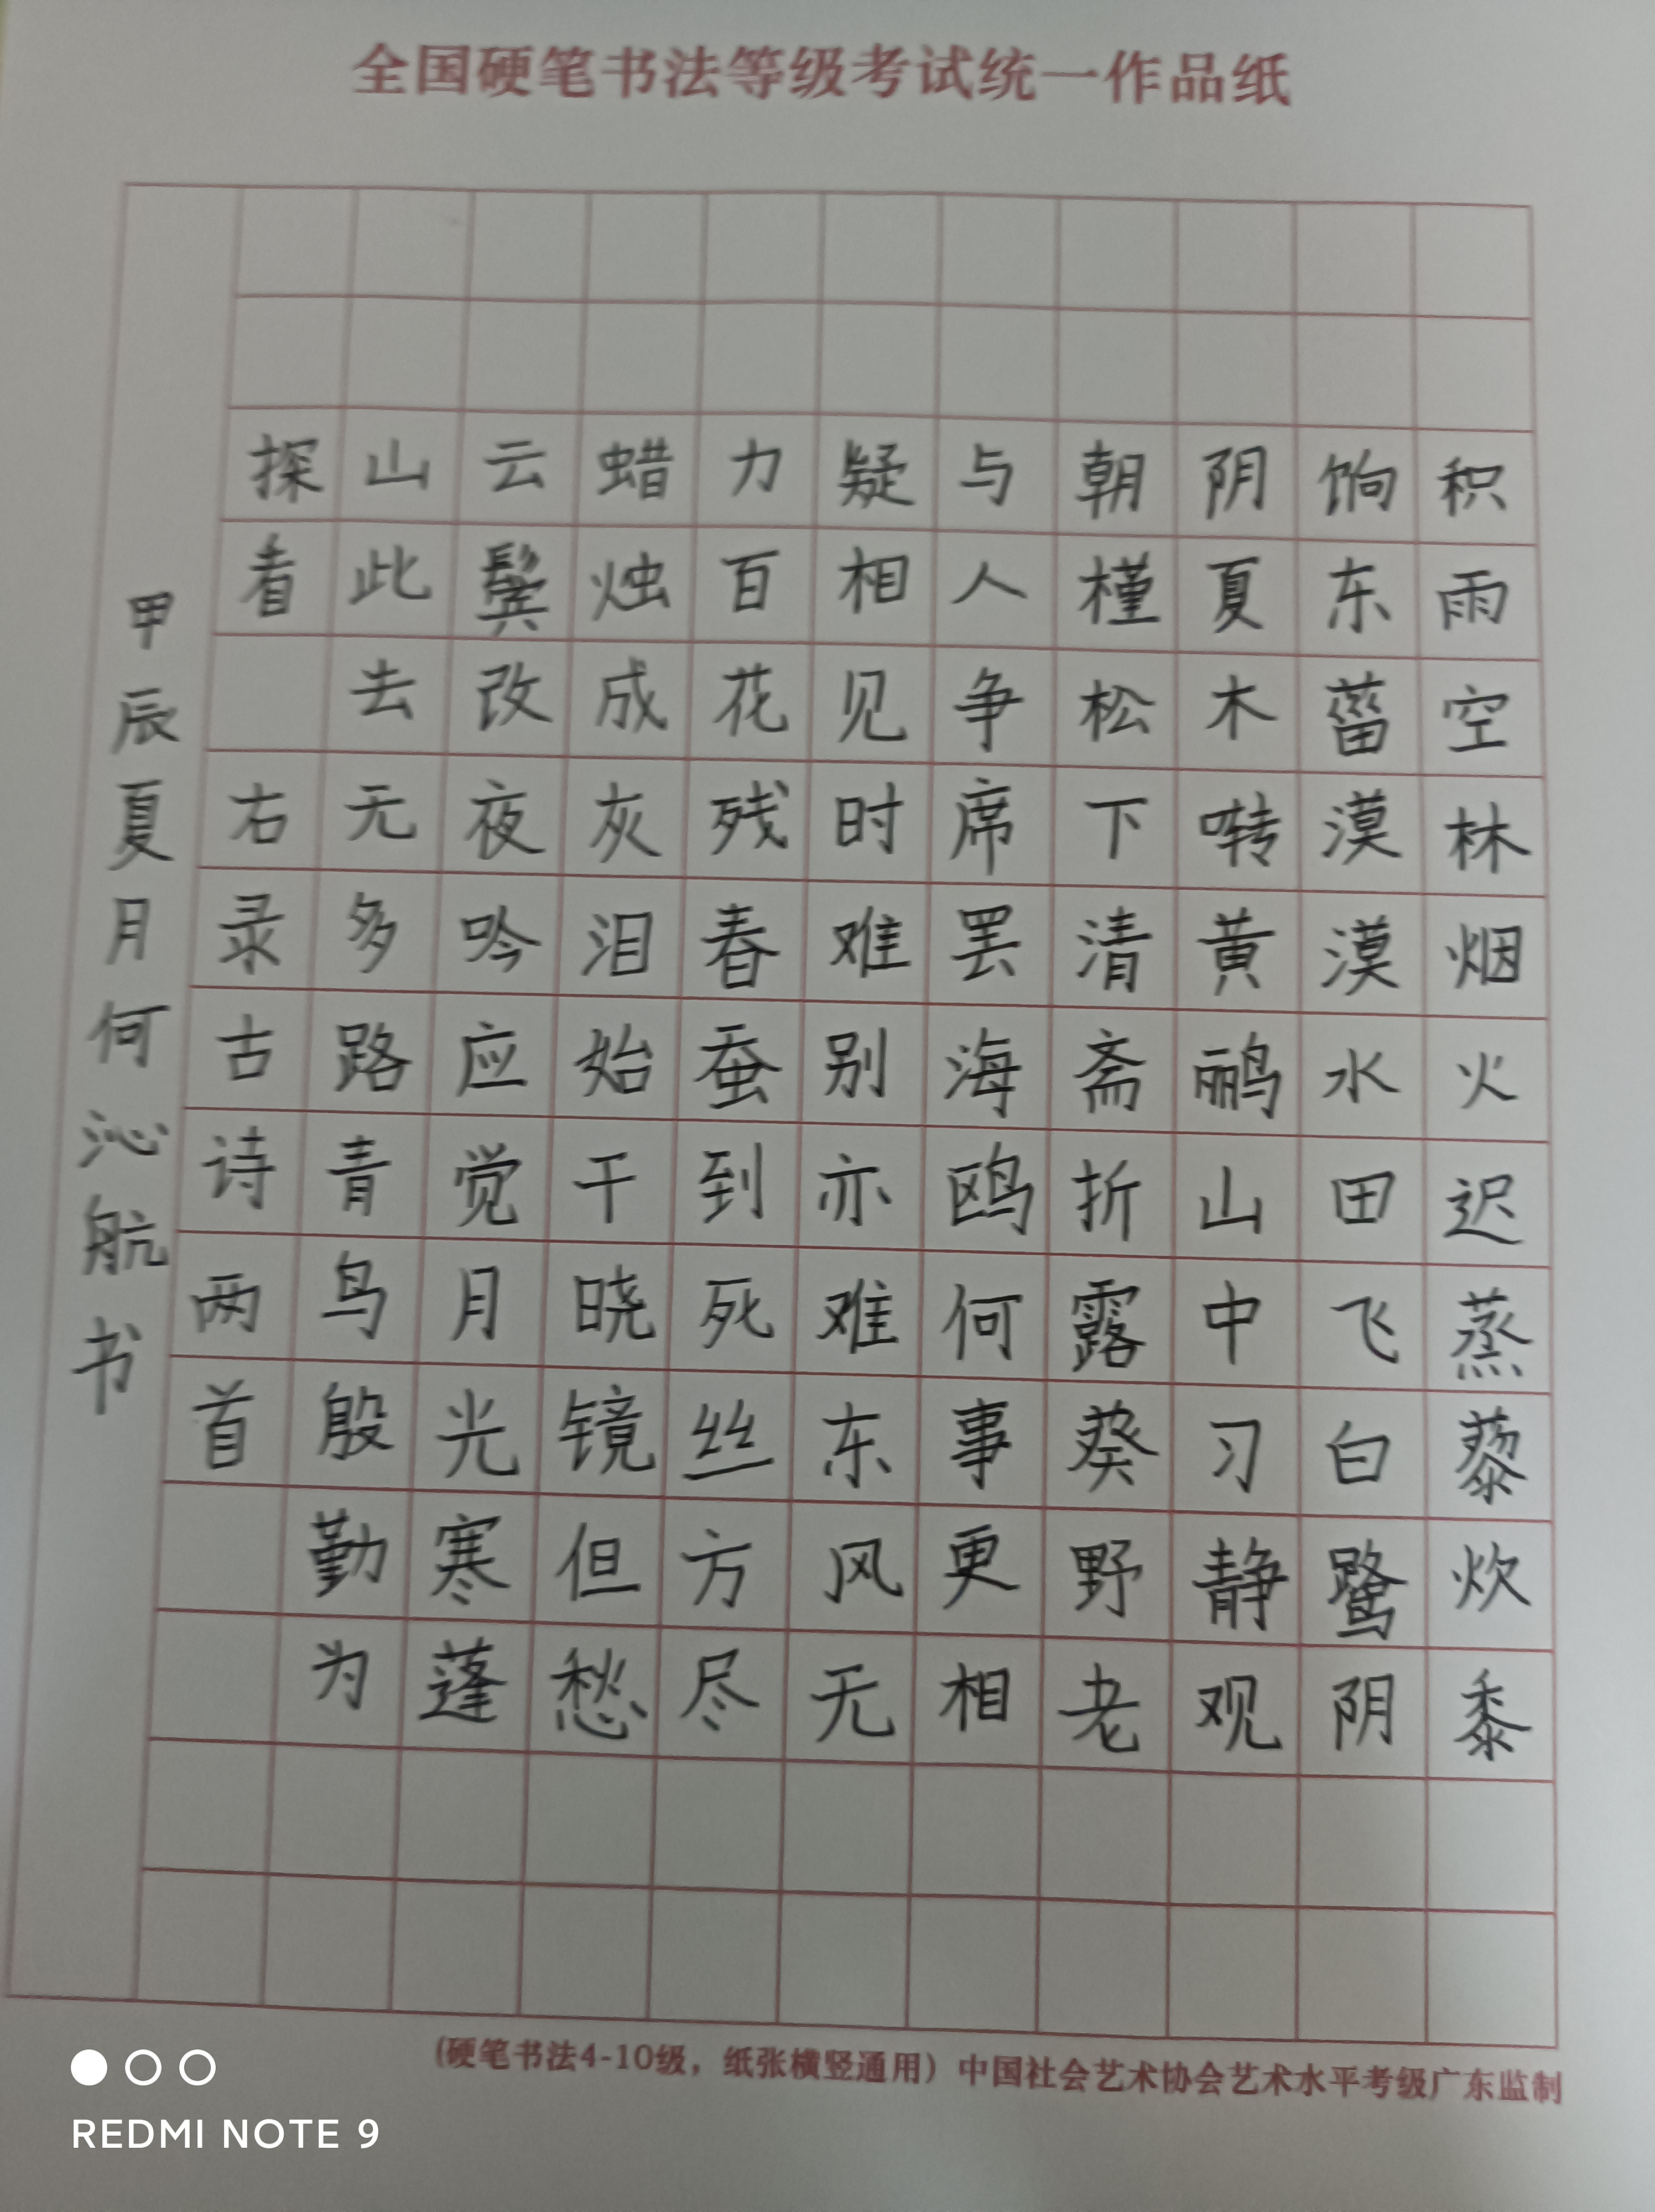 全国硬笔书法等级考试统一作品纸
积雨空林烟火迟蒸藜炊黍
饷东菑漠漠水田飞白鹭阴
阴夏木啭黄鹂山中习静观
朝槿松下清斋折露葵野老
与人争席罢海鸥何事更相
疑相见时难别亦难东风无
力百花残春蚕到死丝方尽
蜡烛成灰泪始干晓镜但愁
云鬓改夜吟应觉月光寒蓬
山此去无多路青鸟殷勤为
探看 右录古诗两首
甲辰夏月何沁航书
(硬笔书法4-10级，纸张横竖通用) 中国社会艺术协会艺术水平考级广东监制
REDMI NOTE 9